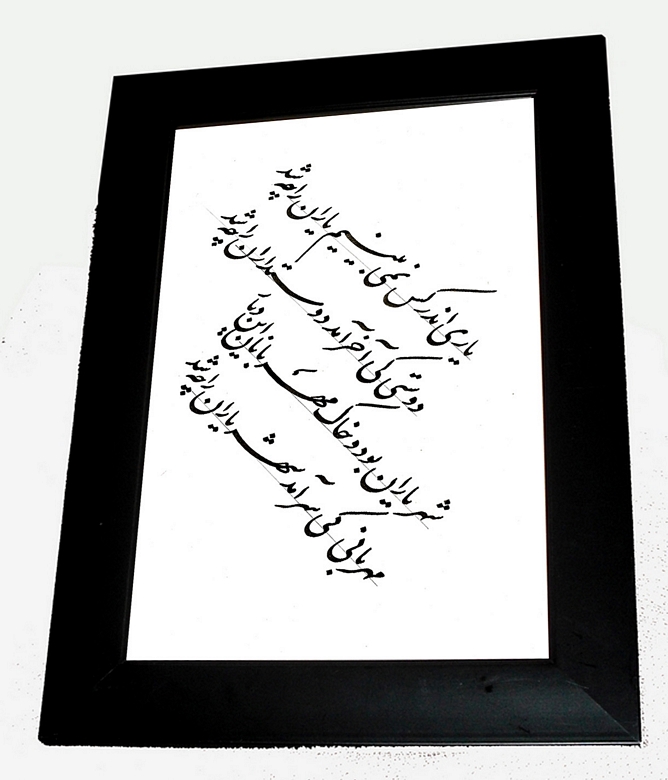 یاری اندر کس نمی بینیم یاران را چه شد
دوستی کی آخر آمد دوستداران را چه شد
شهر یاران بود و خاک مهربانان این دیار
مهربانی کی سر آمد شهریاران را چه شد